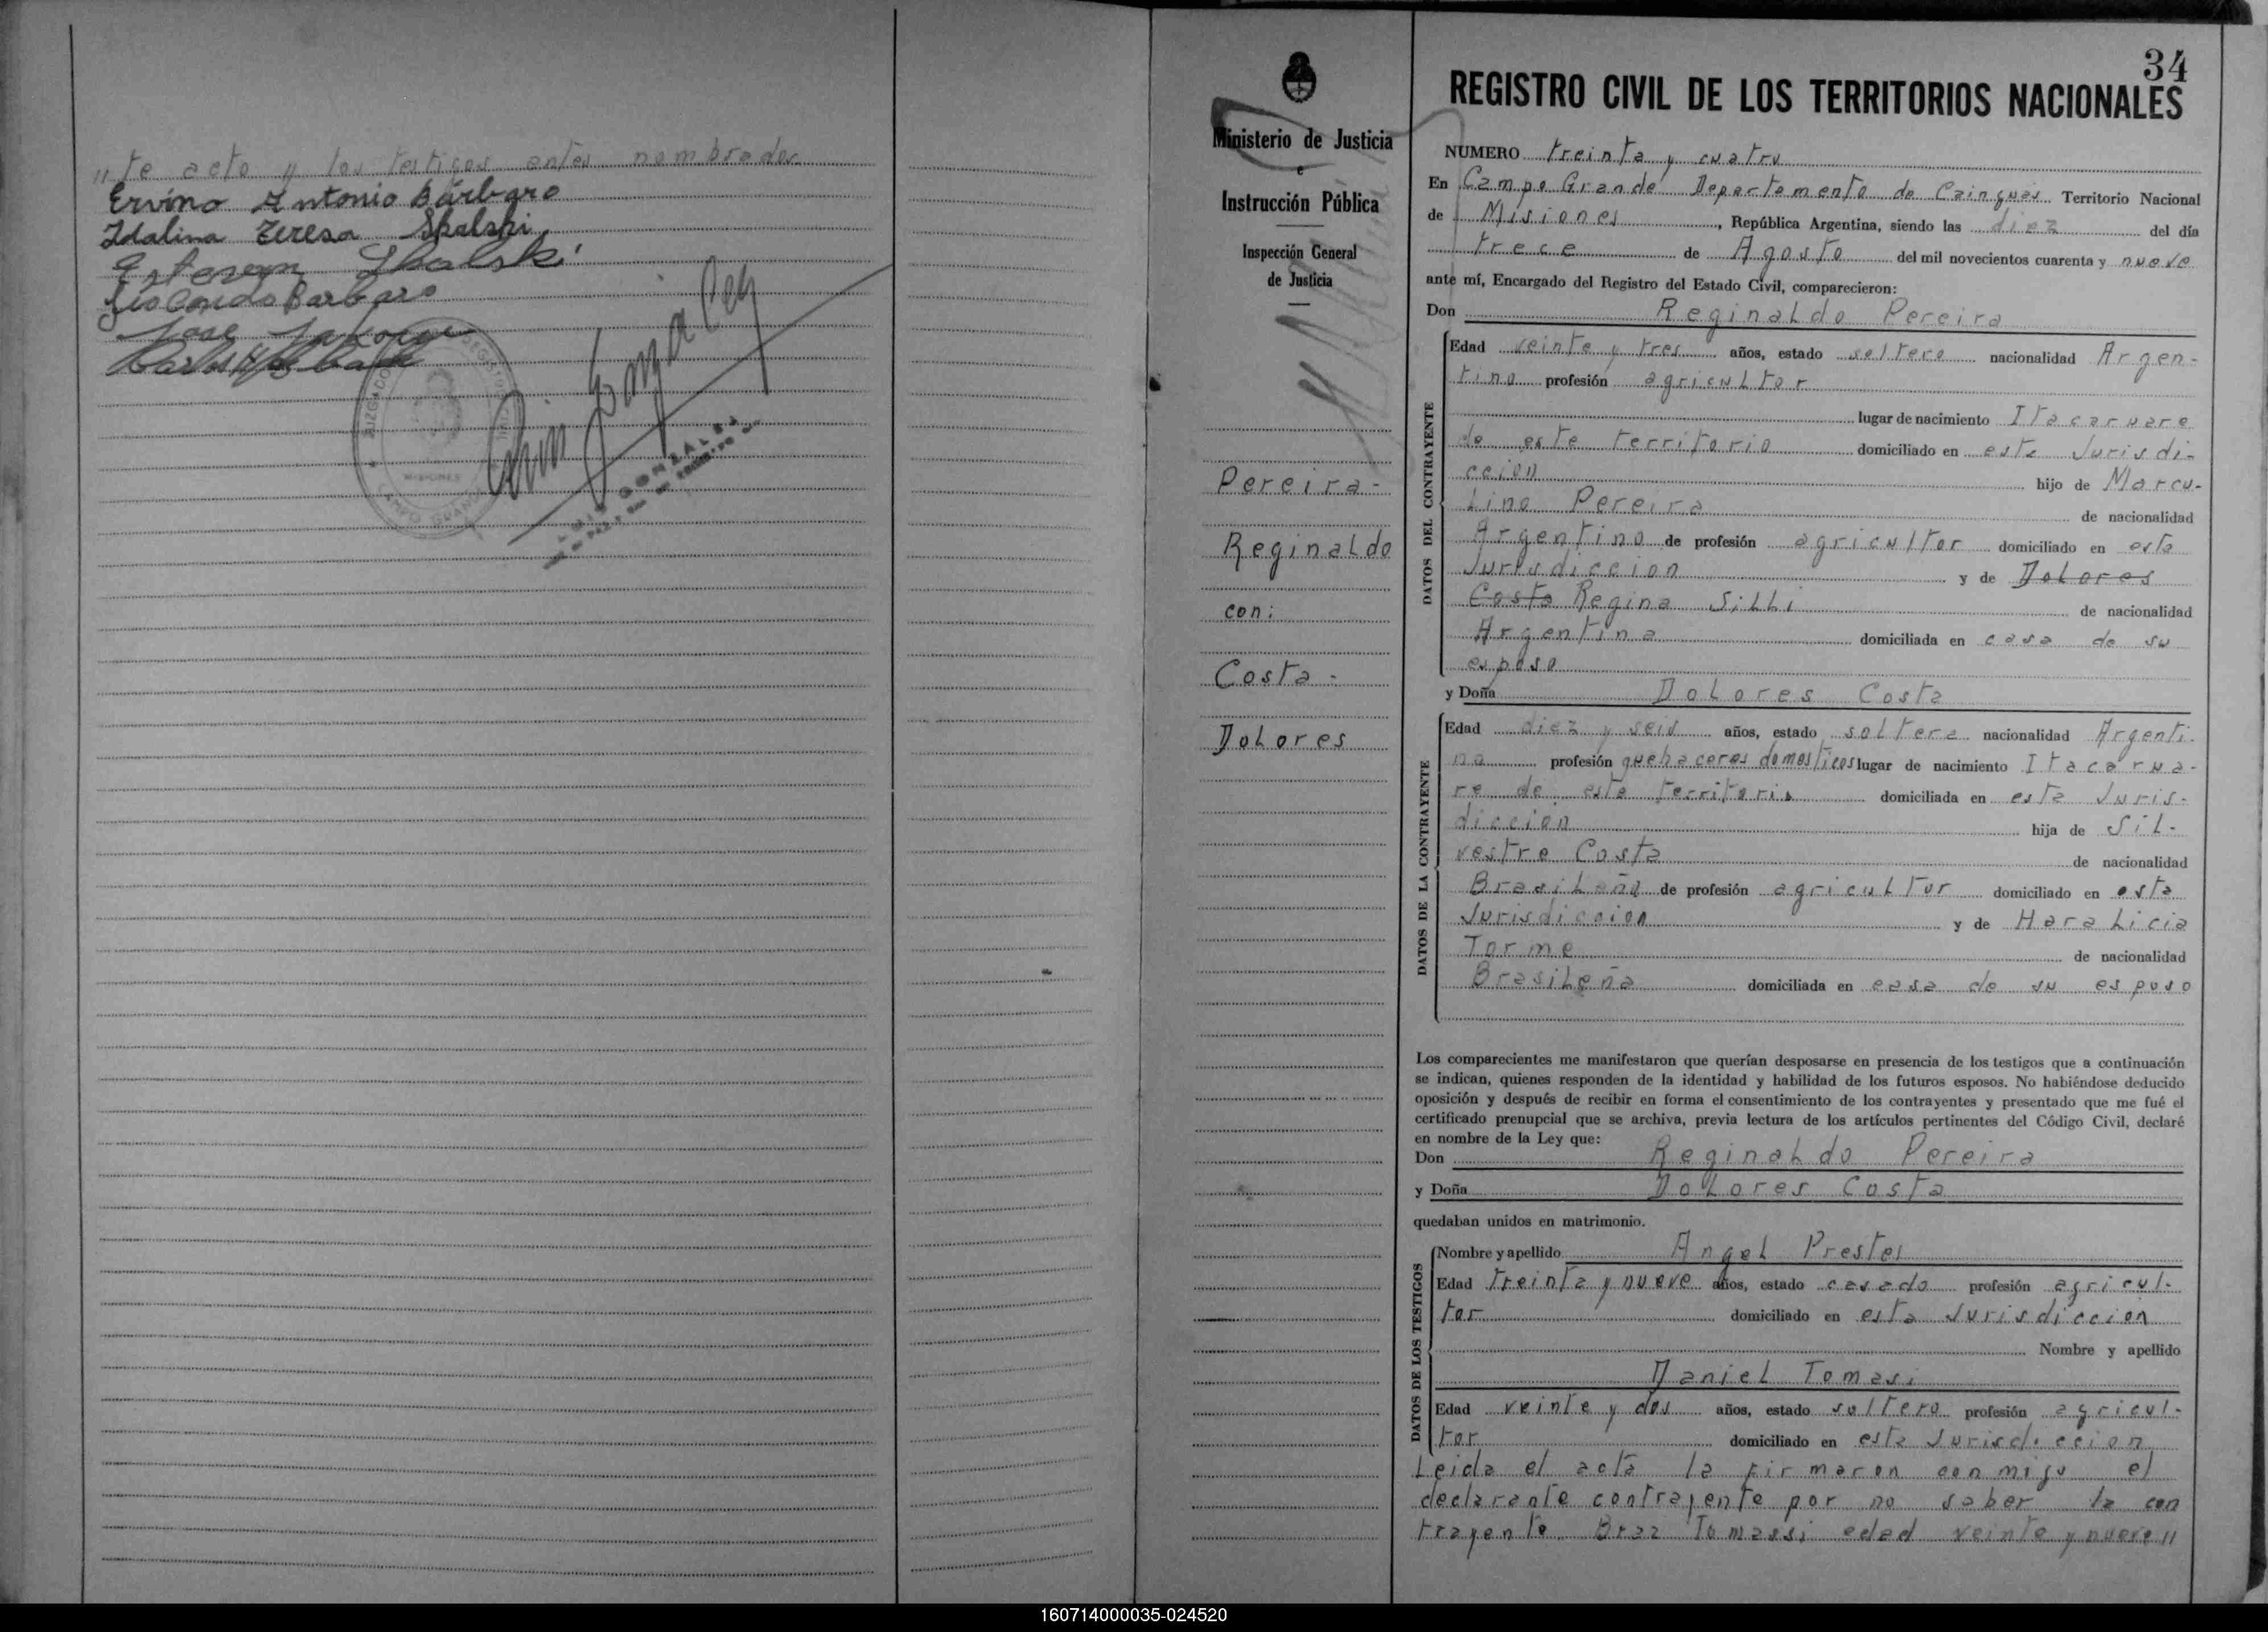 " te acto y los testigos antes nombrados
Ervino Antonio Bárbaro
Idalina Teresa Skalski
Estevan Skalski
Barbaro
Jose
Carlos
CAMPO GRANDE
MISIONES
Ministerio de Justicia
e
Instrucción Pública
Inspección General
de Justicia
Pereira-
Reginaldo
con:
Costa-
Dolores
34
REGISTRO CIVIL DE LOS TERRITORIOS NACIONALES
NUMERO treinta y cuatro
En Campo Grande Departamento de Cainguas Territorio Nacional
de Misiones, República Argentina, siendo las diez del día
trece de Agosto del mil novecientos cuarenta y nueve
ante mí, Encargado del Registro del Estado Civil, comparecieron:
Don Reginaldo Pereira
DATOS DEL CONTRAYENTE
Edad veinte y tres años, estado soltero nacionalidad Argen-
tino profesión agricultor
lugar de nacimiento Itacaruare
de este territorio domiciliado en esta Jurisdi-
ccion hijo de Marcu-
lino Pereira de nacionalidad
Argentino de profesión agricultor domiciliado en esta
Jurisdiccion y de Dolores
Costa Regina Silli de nacionalidad
Argentina domiciliada en casa de su
esposo
y Doña Dolores Costa
DATOS DE LA CONTRAYENTE
Edad diez y seis años, estado soltera nacionalidad Argenti-
na profesión quehaceres domesticos lugar de nacimiento Itacarua-
re de este territorio domiciliada en esta Juris-
diccion hija de Sil-
vestre Costa de nacionalidad
Brasileño de profesión agricultor domiciliado en esta
Jurisdiccion y de Haralicia
Torme de nacionalidad
Brasileña domiciliada en casa de su esposo
Los comparecientes me manifestaron que querían desposarse en presencia de los testigos que a continuación
se indican, quienes responden de la identidad y habilidad de los futuros esposos. No habiéndose deducido
oposición y después de recibir en forma el consentimiento de los contrayentes y presentado que me fué el
certificado prenupcial que se archiva, previa lectura de los artículos pertinentes del Código Civil, declaré
en nombre de la Ley que:
Don Reginaldo Pereira
y Doña Dolores Costa
quedaban unidos en matrimonio.
DATOS DE LOS TESTIGOS
Nombre y apellido Angel Prestes
Edad treinta y nueve años, estado casado profesión agricul-
tor domiciliado en esta Jurisdiccion
Nombre y apellido
Daniel Tomasi
Edad veinte y dos años, estado soltero profesión agricul-
tor domiciliado en esta Jurisdiccion
Leida el acta la firmaron conmigo el
declarante contrayente por no saber la con
trayente Braz Tomassi edad veinte y nueve "
160714000035-024520